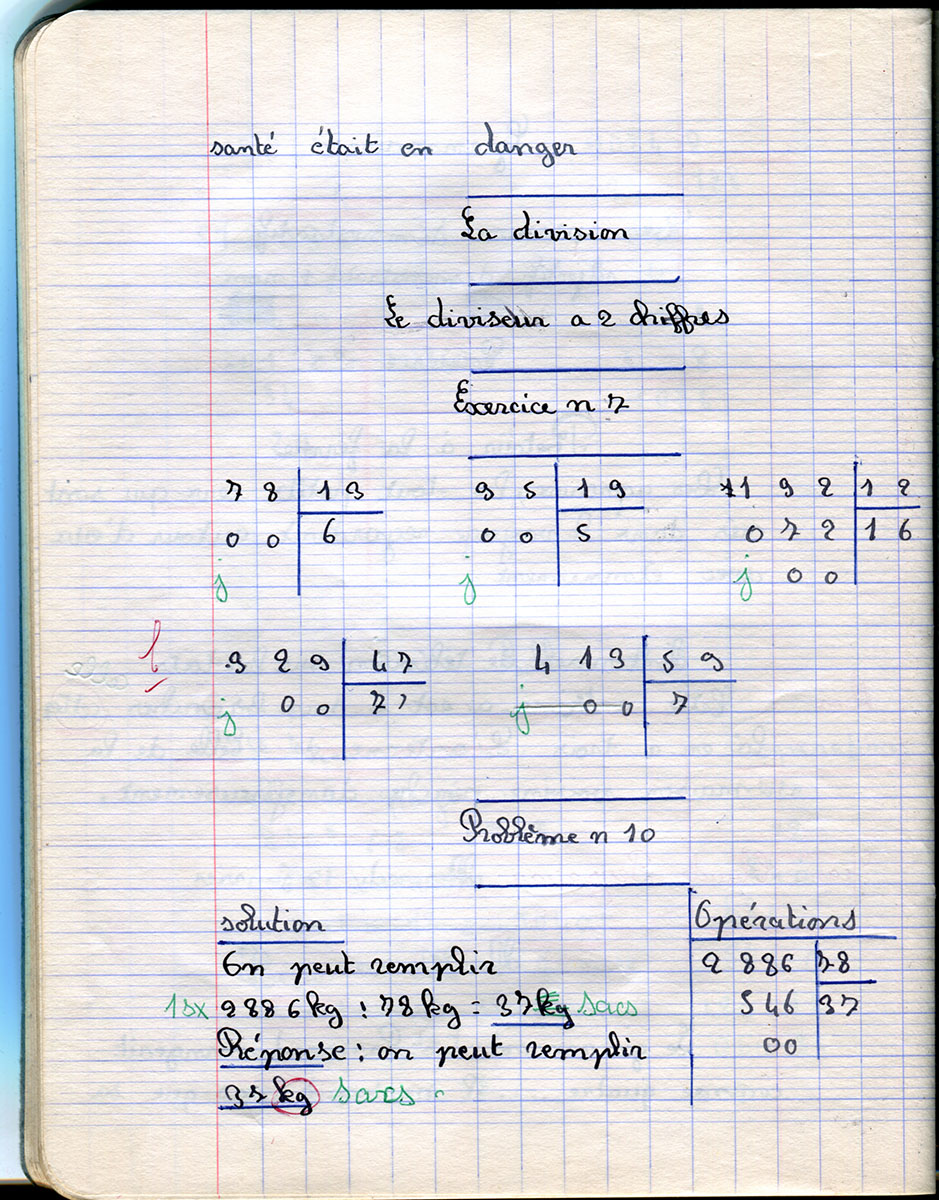 santé était en danger
La division
Le diviseur a 2 chiffres
Exercice n 7
7 8 | 1 3
0 0 | 6
j
9 5 | 1 9
0 0 | 5
j
1 9 2 | 1 2
0 7 2 | 1 6
j 0 0
3 2 9 | 4 7
j 0 0 | 7
4 1 3 | 5 9
j 0 0 | 7
Problème n 10
solution
On peut remplir
2886 kg : 78 kg = 37 kg sacs
Réponse : on peut remplir
37 kg sacs
Opérations
2 886 | 78
546 | 37
00